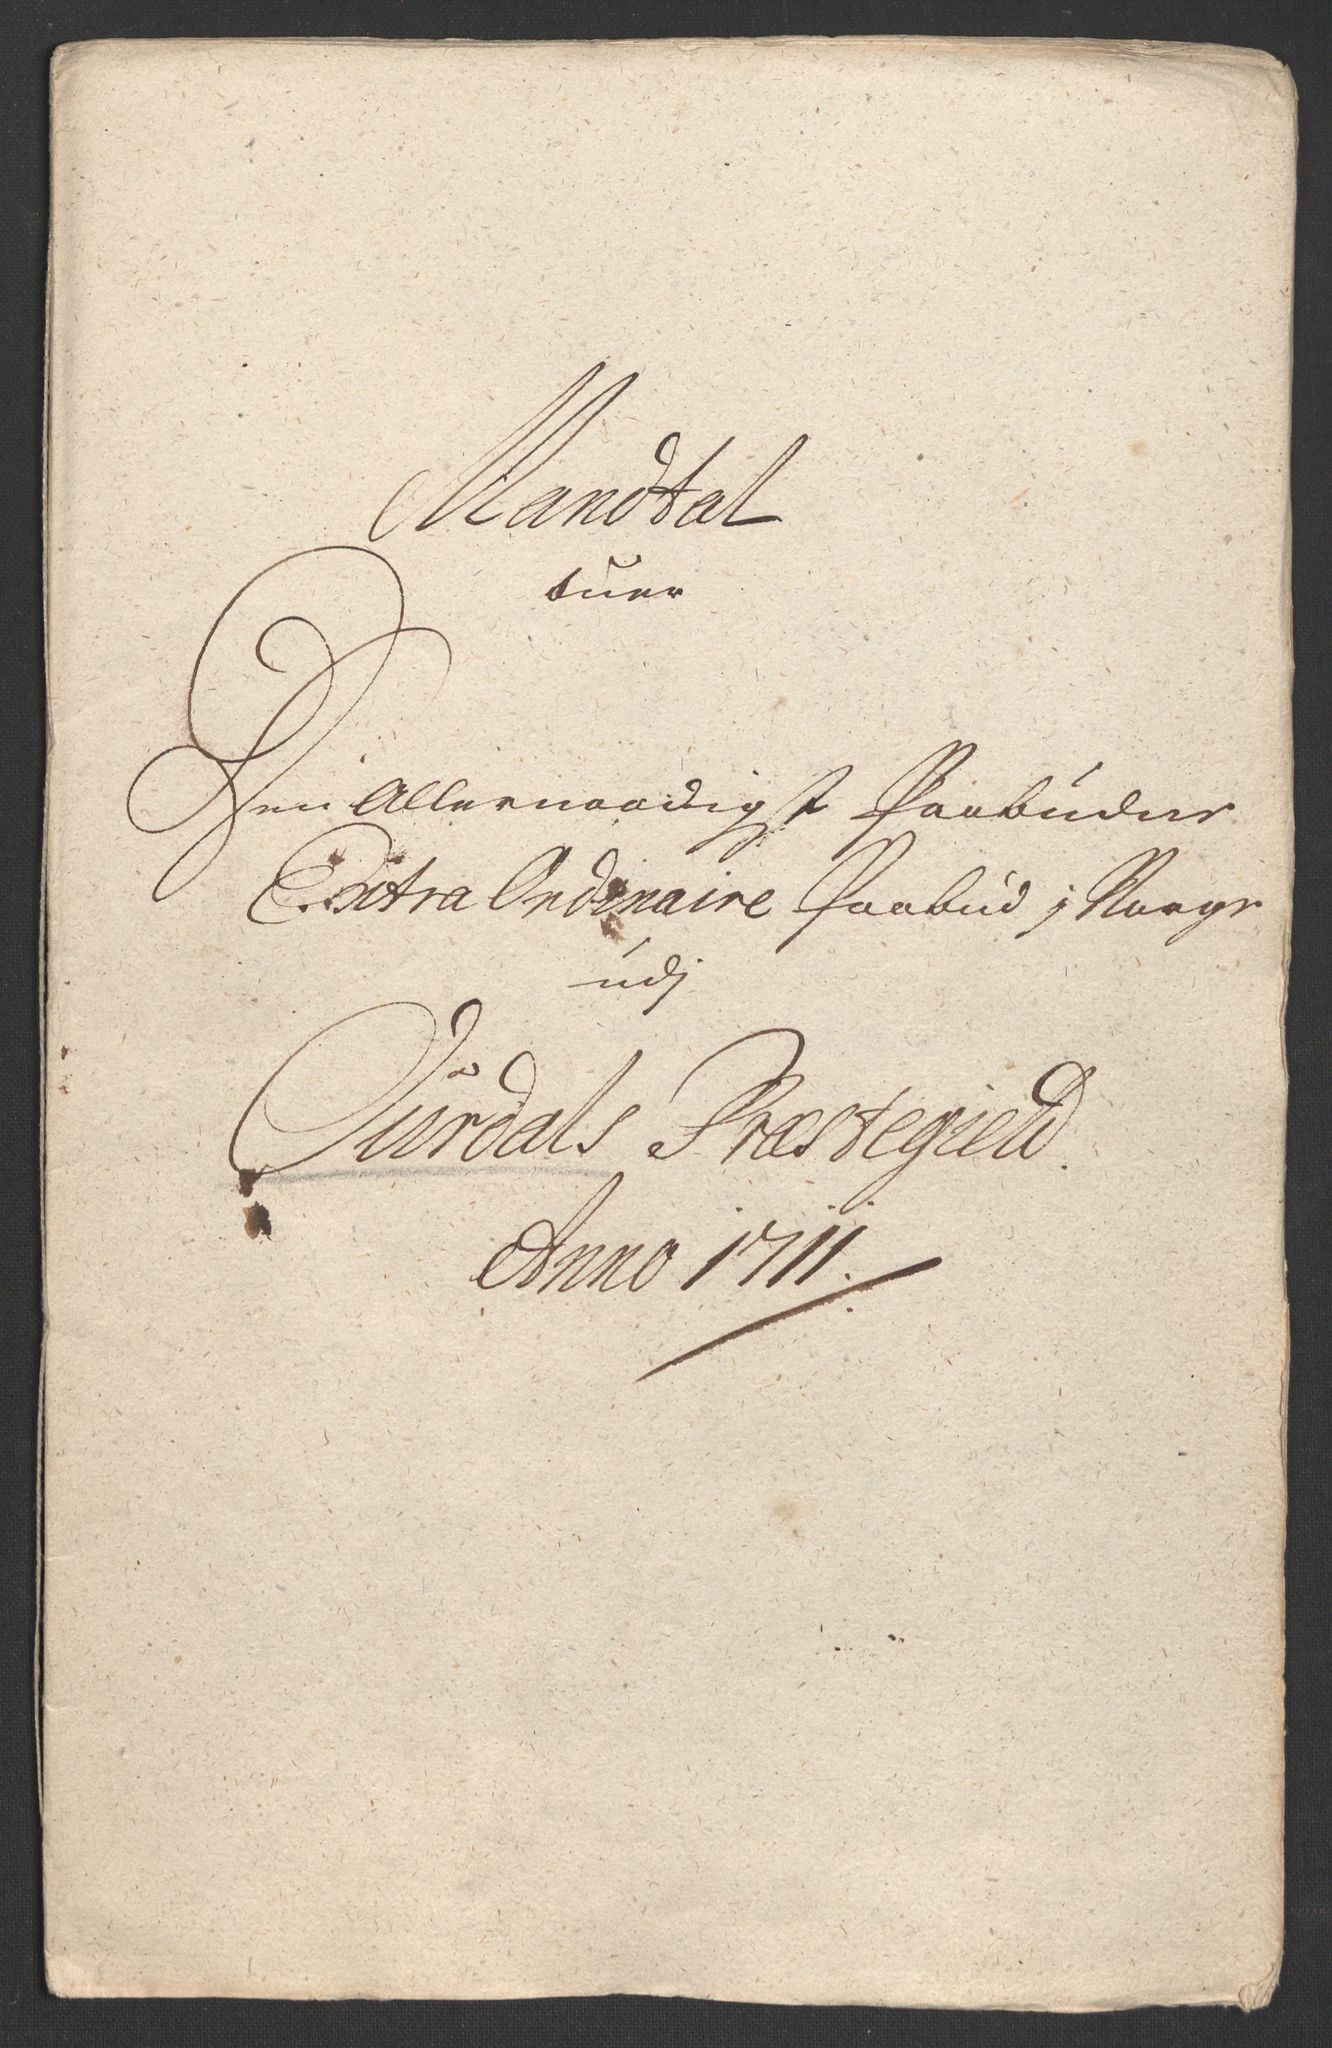 Mandtal
ofuer
Den Allernaadigst Paabudne
Extra Ordinaire Paabud j Norge
udj
Aurdals Præstegield.
Anno 1711.